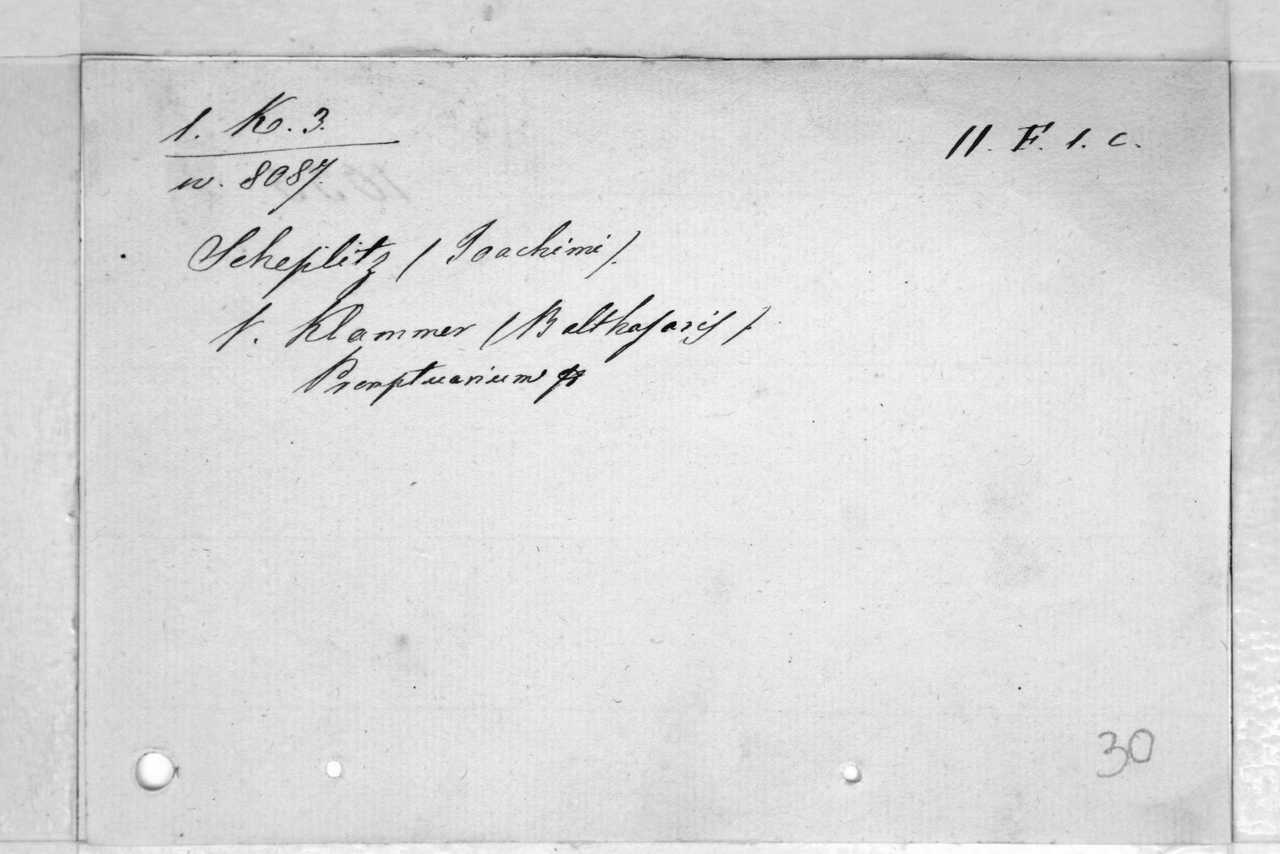 1. K. 3.
II. F. 1. c.
n. 8087.
Scheplitz (Joachimi).
v. Klammer (Balthasaris).
Promptuarium
30